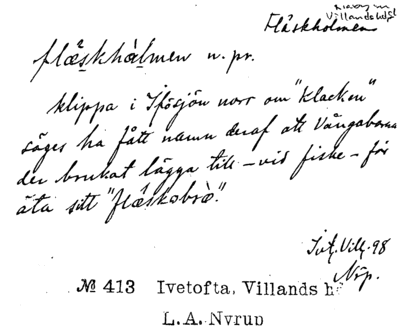 Villands hd
Fläskholmen
flæskhàlmen n. pr.
klippa i Ifösjön norr om "Klacken"
säges ha fått namn deraf att Vångaborna
der brukat lägga till – vid fiske – för
äta sitt "flæskobrò".
Ivt. Vill. 98
Nrp.
№ 413 Ivetofta, Villands h
L. A. Nyrup